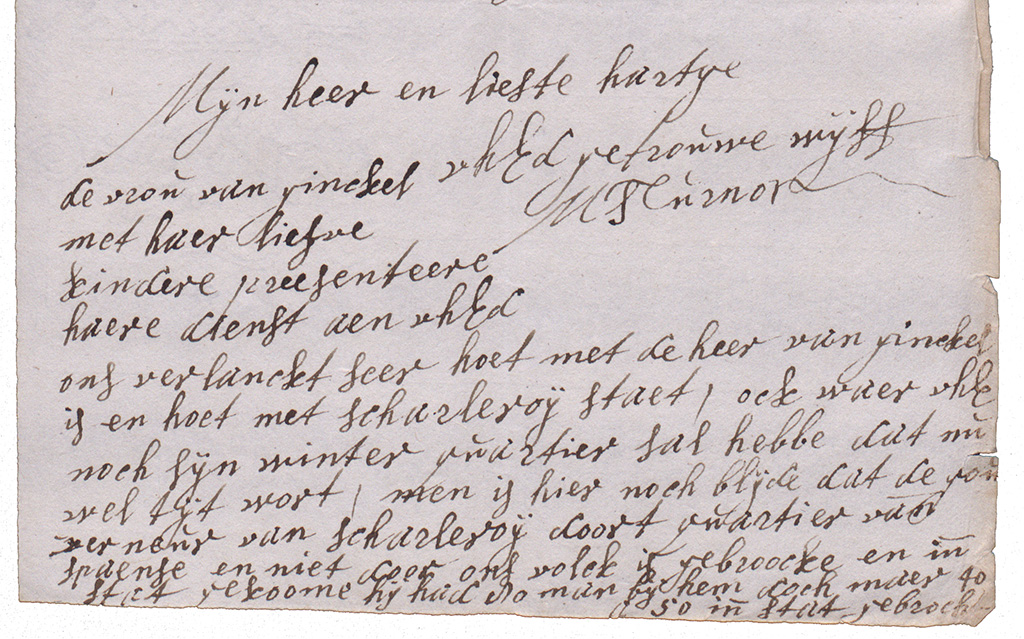 Mÿn heer en liefste hartye
uhEd getrouwe wÿff
M Turnor
de vrou van ginckel
met haer liefve
kindere preesenteere
haere dienst aen uhEd
ons verlanckt seer hoet met de heer van ginckel
is en hoet met scharleroÿ staet / ock waer uhE
noch sÿn winter quartier sal hebbe dat nu
wel tÿt wort / men is hier noch blÿde dat de gou
verneur van scharleroÿ doort quartier van
spaense en niet door ons volck is gebroocke en in
stat gekoome hÿ had man bÿ hem doch maer 40
a 50 in stat gebrocht